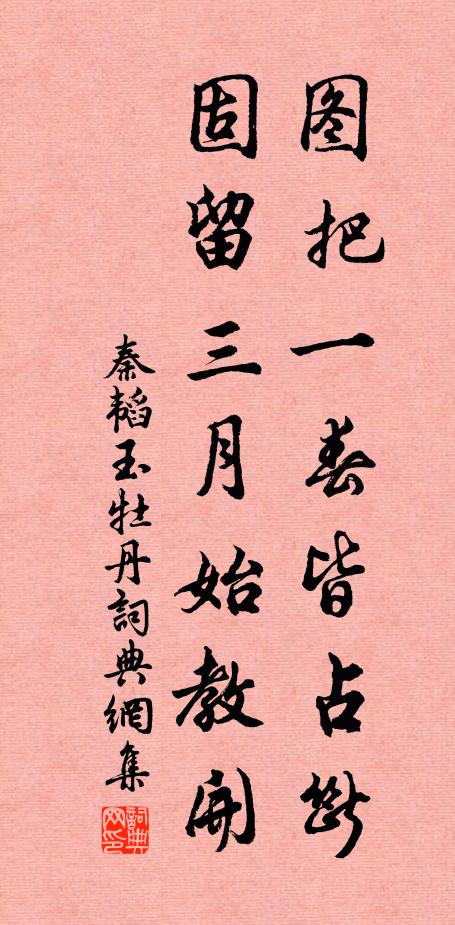 图把一春皆占斷
固留三月始教開
秦韜玉牡丹詞典網集
詞典网印